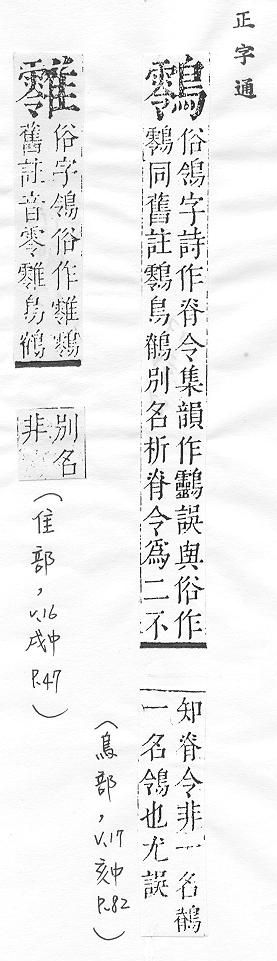 正字通
鸋
俗鴒字詩作脊令集韻作䴇誤與俗作
鸋同舊註鸋鳥鶺別名析脊令爲二不
知脊令非一名鶺
一名鴒也尤誤
（鳥部，v.17 亥中 P.82）
俗字鴒俗作
舊註音零 鳥鶺
別名
非
（隹部，v.16 戌中 P.47）